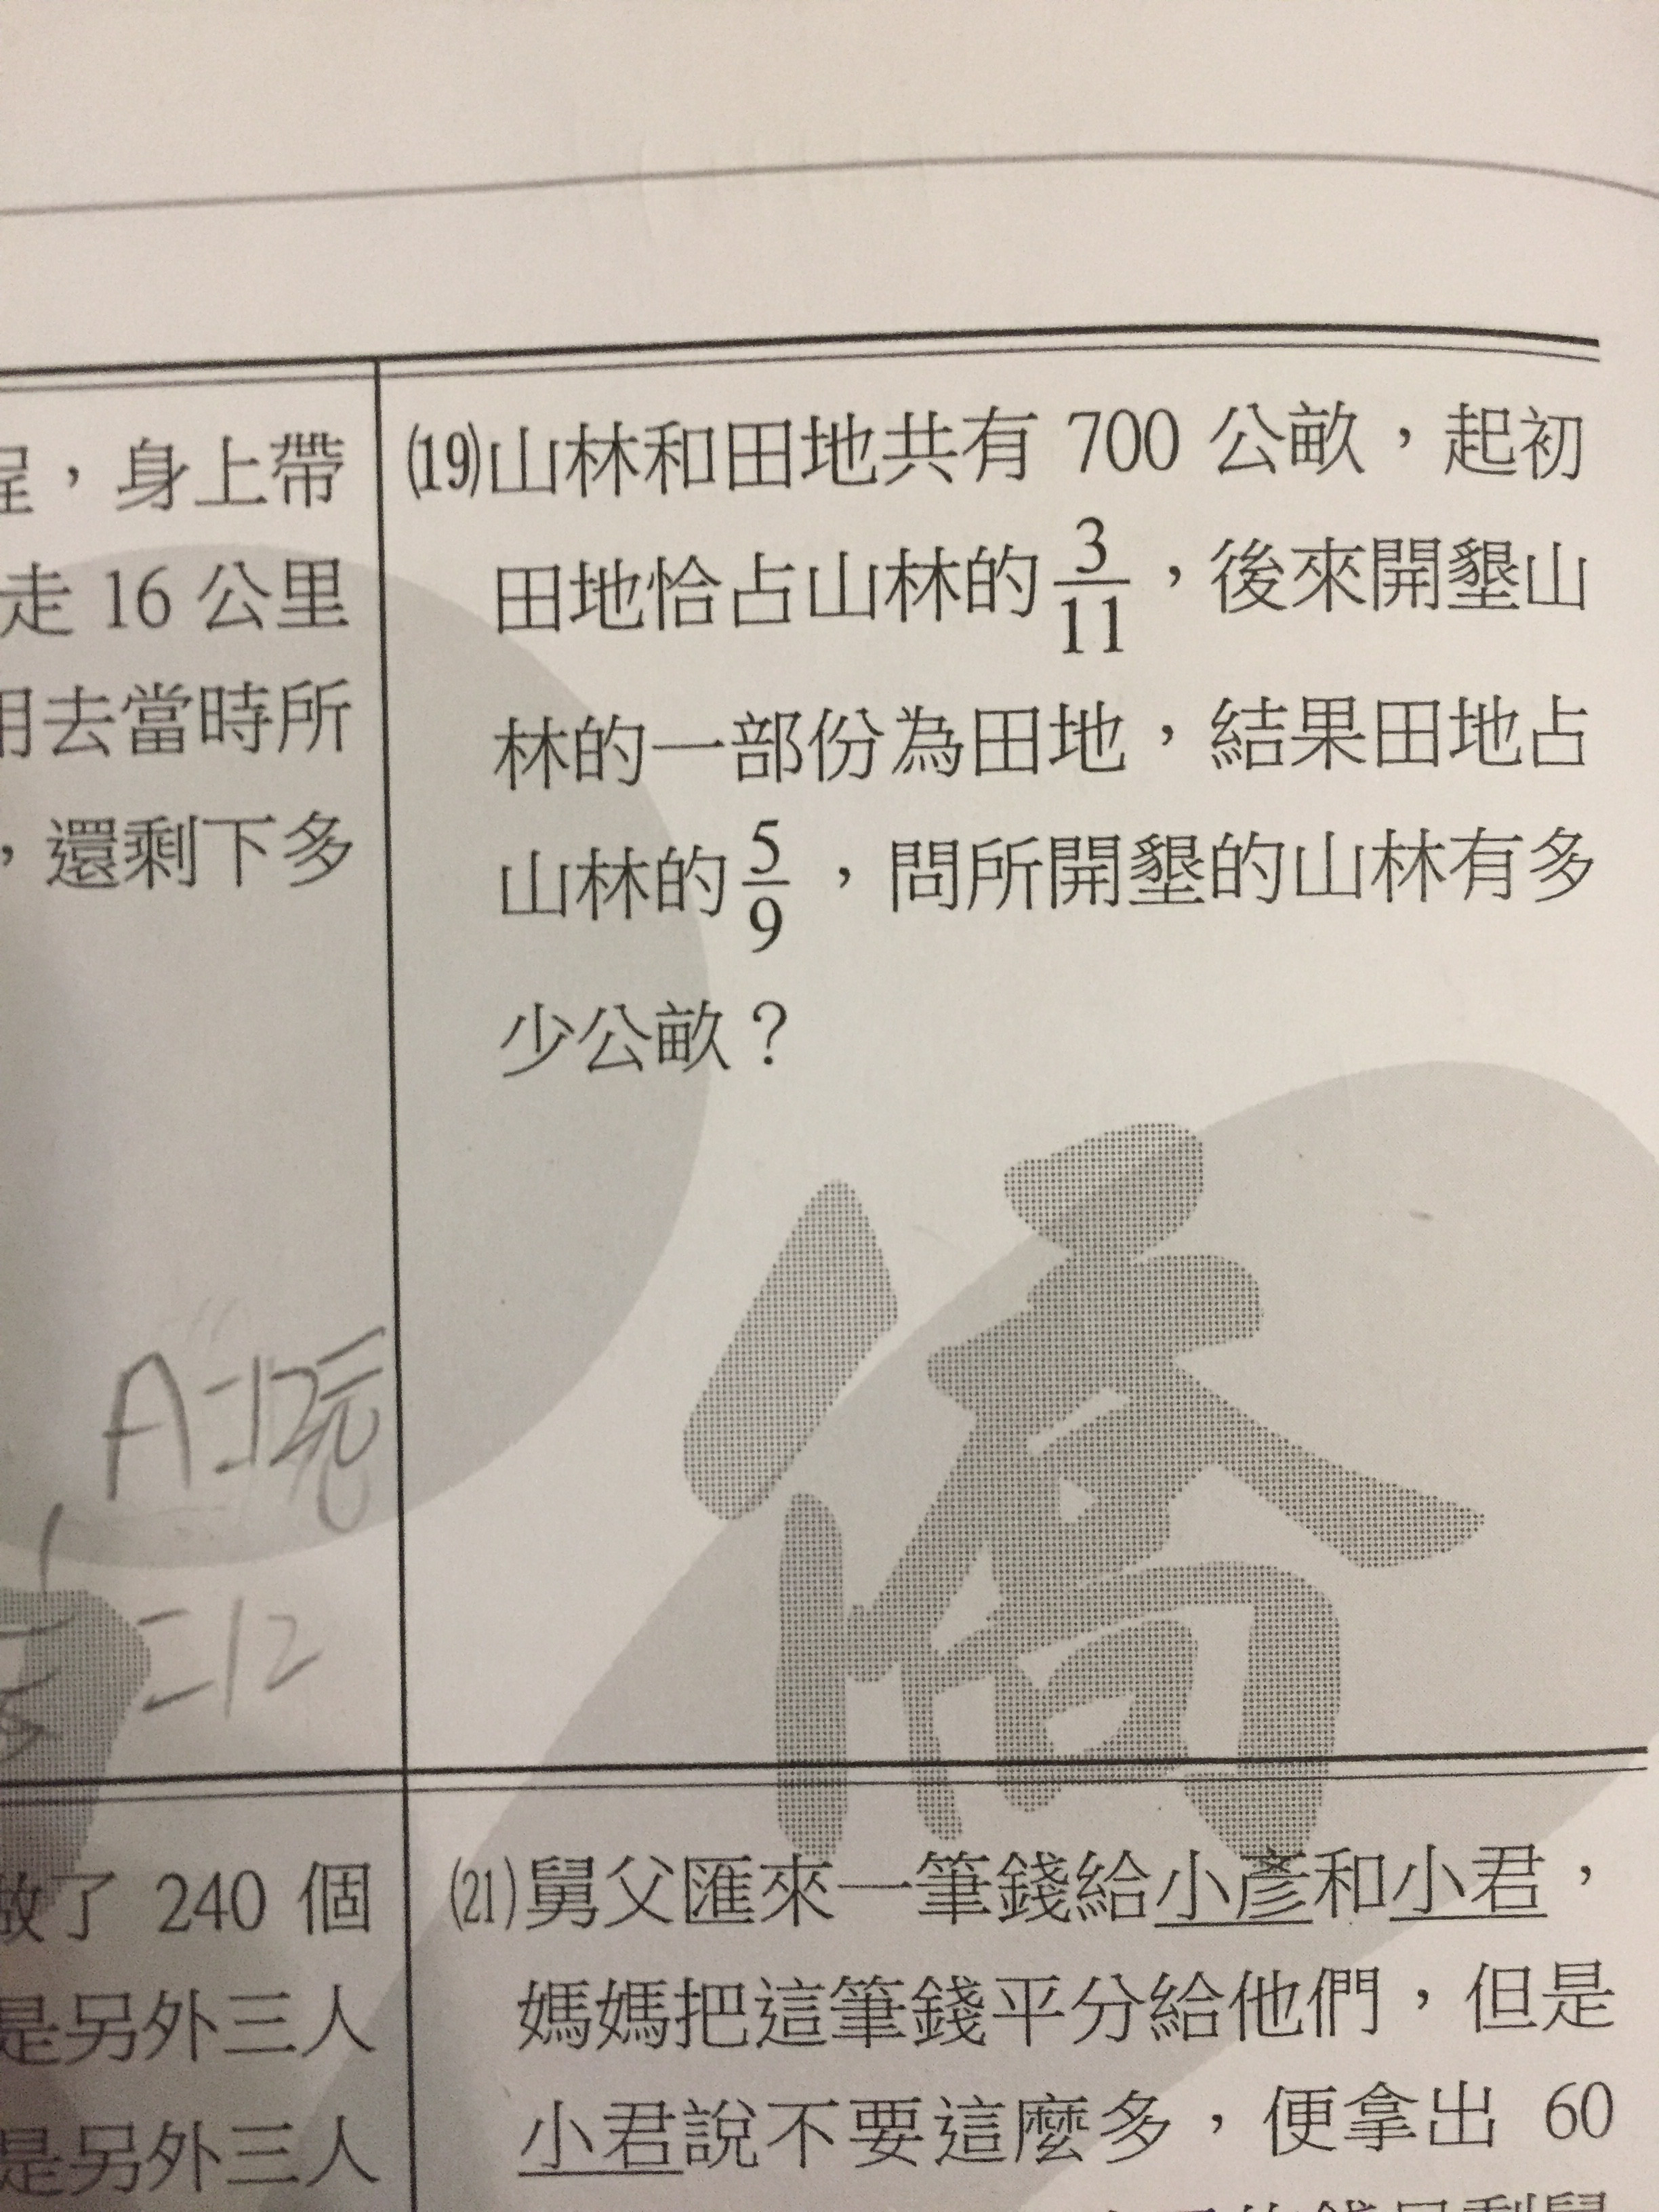 程，身上帶
走 16 公里
用去當時所
，還剩下多
A=12元
=12
⒆山林和田地共有 700 公畝，起初
田地恰占山林的3/11，後來開墾山
林的一部份為田地，結果田地占
山林的5/9，問所開墾的山林有多
少公畝？
做了 240 個
是另外三人
是另外三人
(21)舅父匯來一筆錢給小彥和小君，
媽媽把這筆錢平分給他們，但是
小君說不要這麼多，便拿出 60